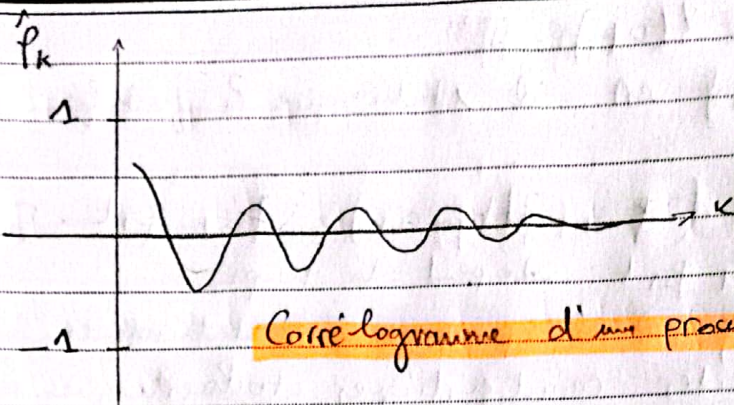 ρ̂ₖ
1
K
-1
Corrélogramme d'un proc